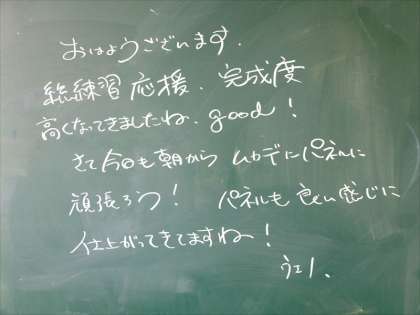 おはようございます.
総練習 応援. 完成度
高くなってきましたね. good!
さて今日も朝から ムカデにパネルに
頑張ろう! パネルも 良い感じに
仕上がってきてますね〜!
ウエノ.